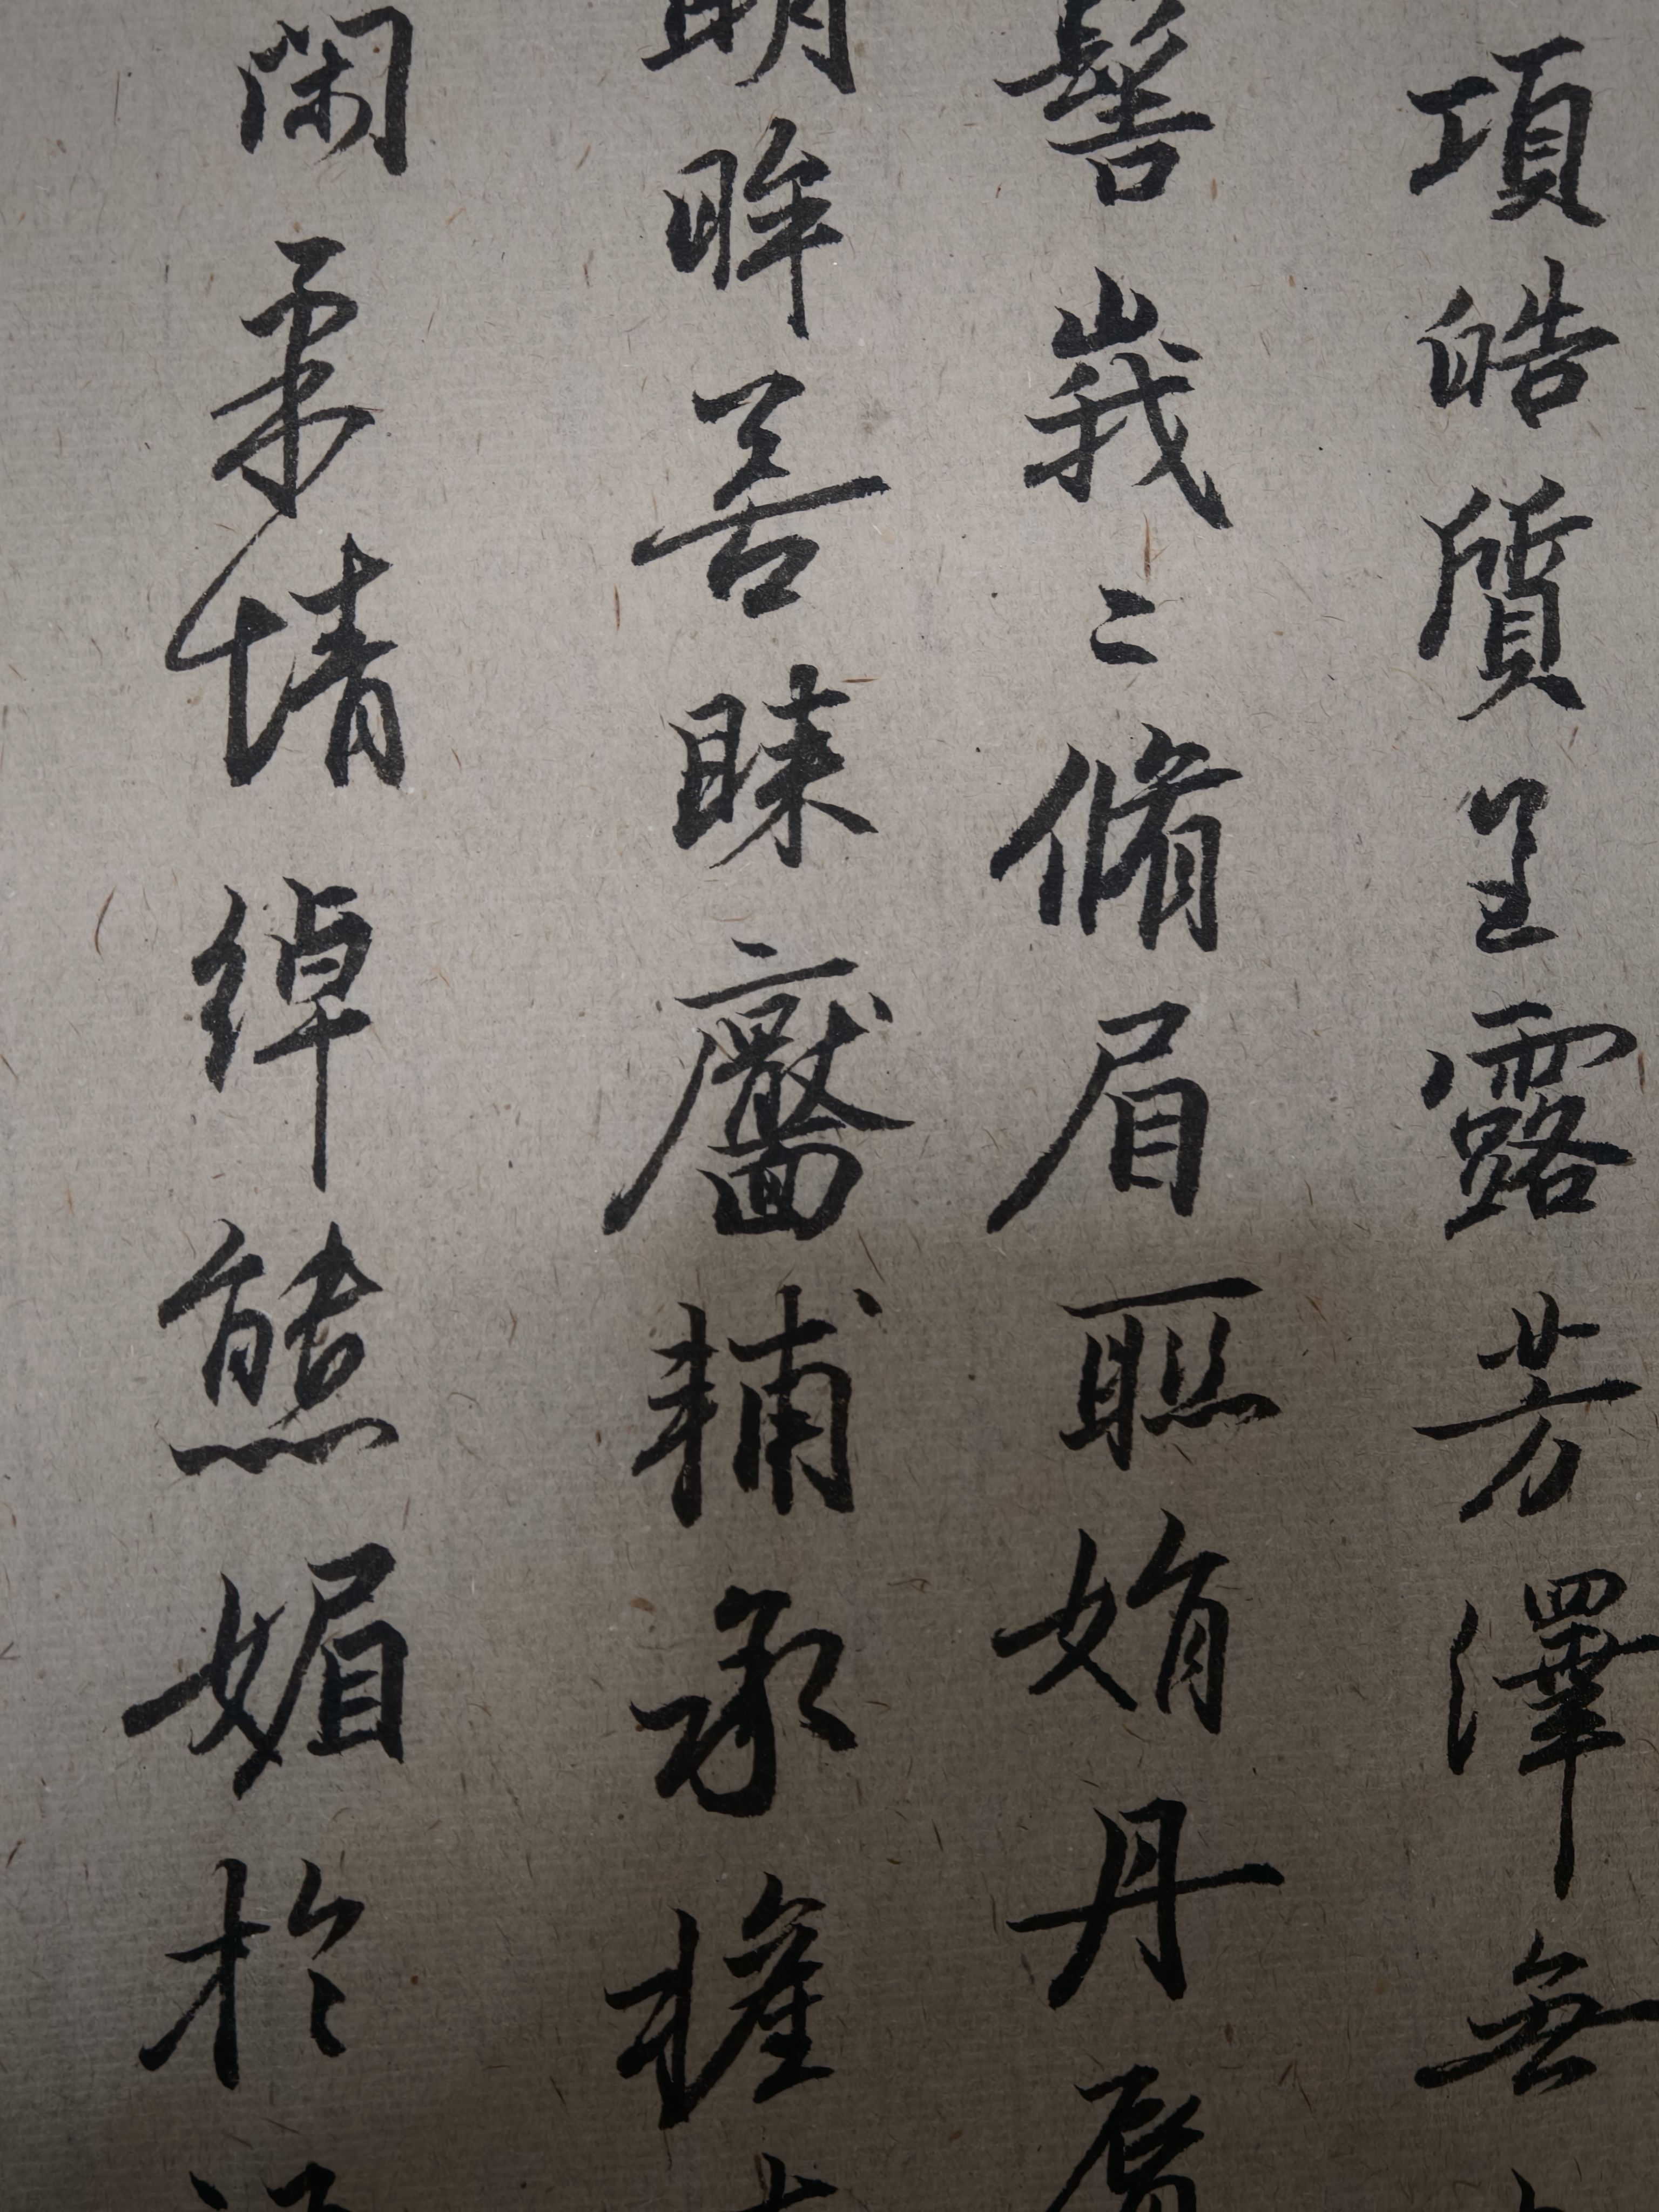 項皓質呈露芳澤無
髻峩〻脩眉聮娟丹脣
明眸善睐靨輔承權
閑柔情綽態媚於